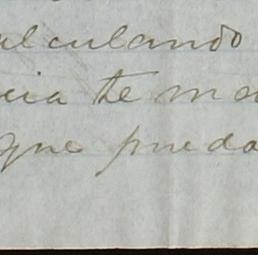 alculando
cia te ma
que pueda